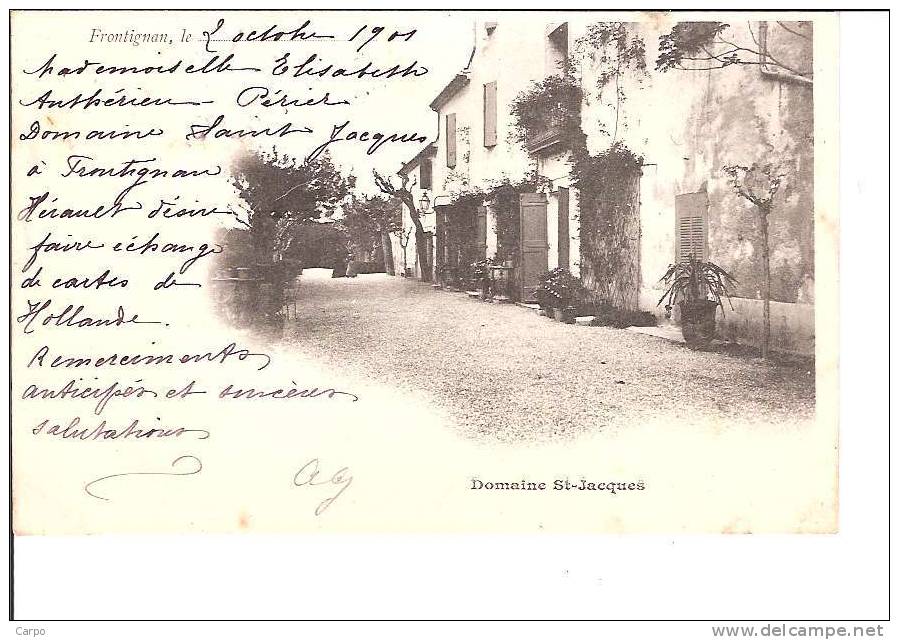 Frontignan, le 2 octobre 1901
Mademoiselle Elisabeth
Anthérieu - Périer
Domaine Saint Jacques
à Frontignan
Hérault désire
faire échange
de cartes de
Hollande.
Remerciments
anticipés et sincères
salutations
Domaine St-Jacques
Carpo
www.delcampe.net